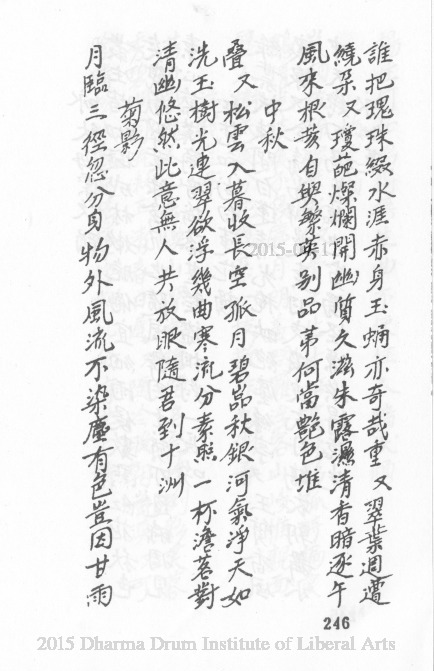 誰把瑰珠綴水涯赤身玉蛹亦奇哉重又翠葉週遭
繞朶又瓊葩燦爛開幽質久滋朱露濕清香暗逐午
風來根荄自與繁英別品第何當艷色堆
中秋
疊又松雲入暮收長空孤月碧嵓秋銀河氣淨天如
洗玉樹光連翠欲浮幾曲寒流分素照一杯澹茗對
清幽悠然此意無人共放眼隨君到十洲
菊影
月臨三徑忽分身物外風流不染塵有色豈因甘雨
246
2015 Dharma Drum Institute of Liberal Arts